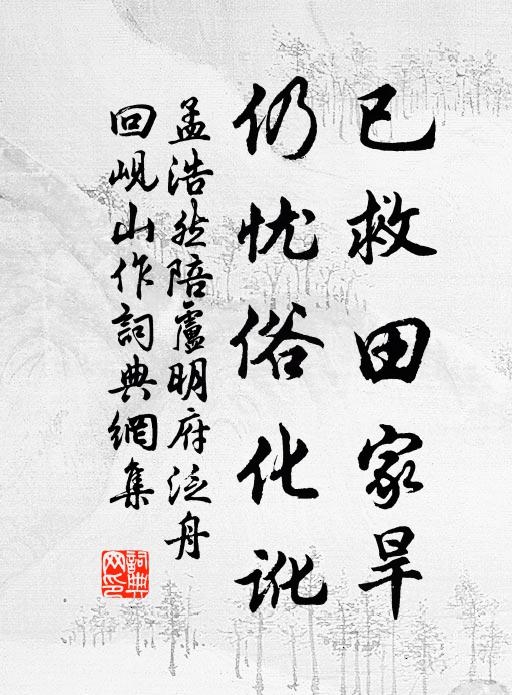 已救田家旱
仍忧俗化讹
孟浩然陪盧明府泛舟
回峴山作詞典網集
詞典網印